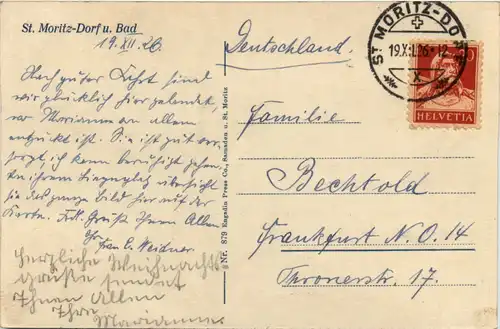 St. Moritz-Dorf u. Bad
19. XII. 26
Nach guter Fahrt sind
wir glücklich hier gelandet,
Marianne an allem
entzückt ist. Sie ist gut ver-
sorgt, ich kann beruhigt gehen.
In ihrem Liegeplatz übersieht
sie das ganze Bild hier auf der
Karte. Frdl. Grüße Ihnen Allen
Ihre
Frau E. Weidner
Herzliche Weihnachts
grüße sendet
Ihnen Allen
Ihre
Marianne.
Nr. 879 Engadin Press Co., Samaden u. St. Moritz
ST. MORITZ-DO
19.XII.26-12
X
HELVETIA
Deutschland.
Familie
Bechtold
Frankfurt N.O. 14
Thronerstr. 17.